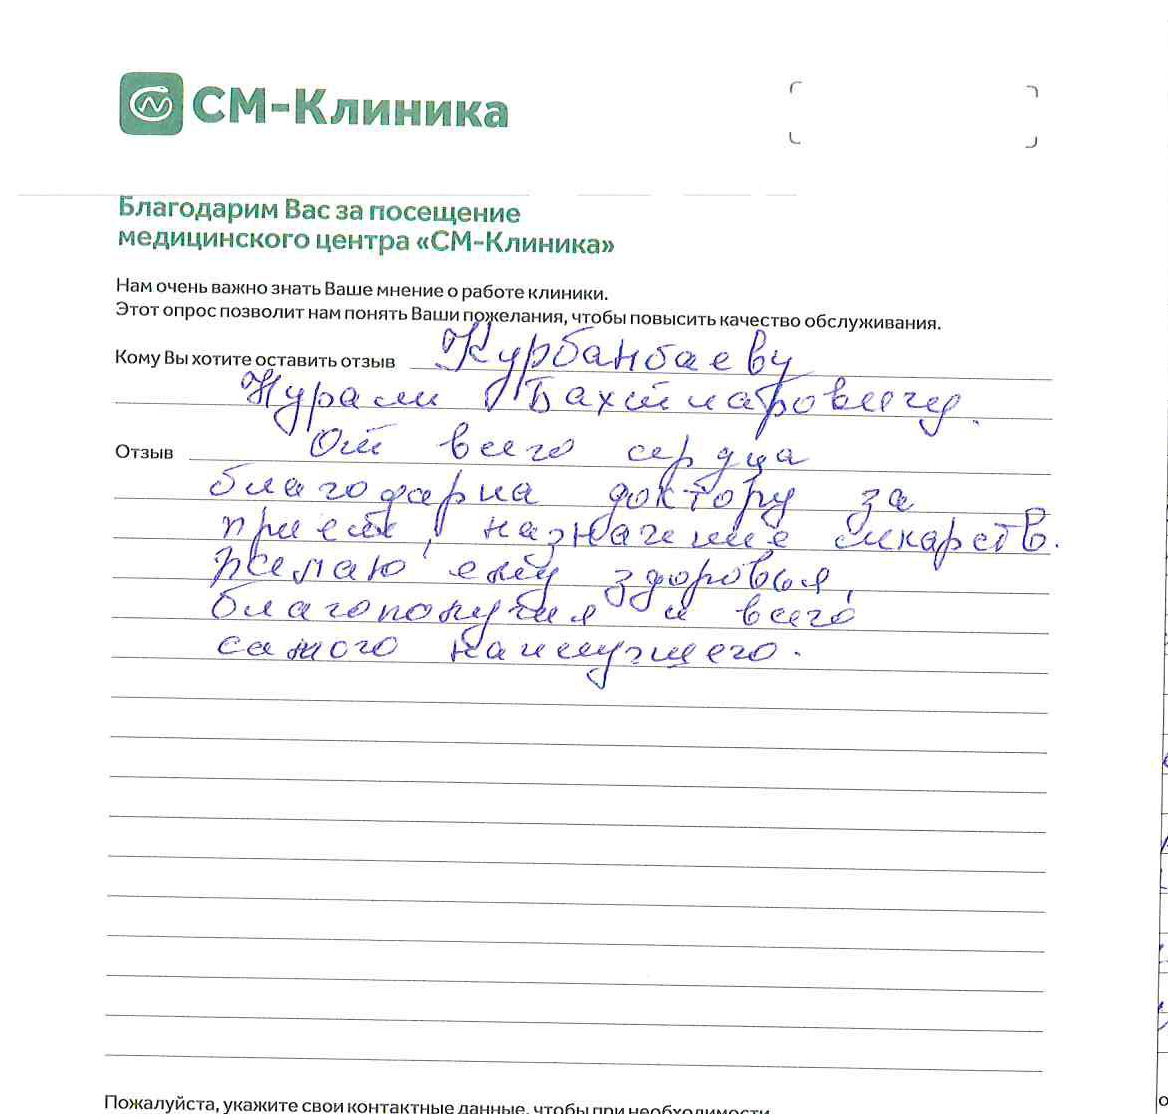 СМ-Клиника
Благодарим Вас за посещение
медицинского центра «СМ-Клиника»
Нам очень важно знать Ваше мнение о работе клиники.
Этот опрос позволит нам понять Ваши пожелания, чтобы повысить качество обслуживания.
Кому Вы хотите оставить отзыв Курбанбаеву
Нурали Бахтиаровичу.
Отзыв От всего сердца
благодарна доктору за
прием, назначение лекарств.
Желаю ему здоровья,
благополучия и всего
самого наилучшего.
Пожалуйста, укажите свои контактные данные, чтобы при необходимости